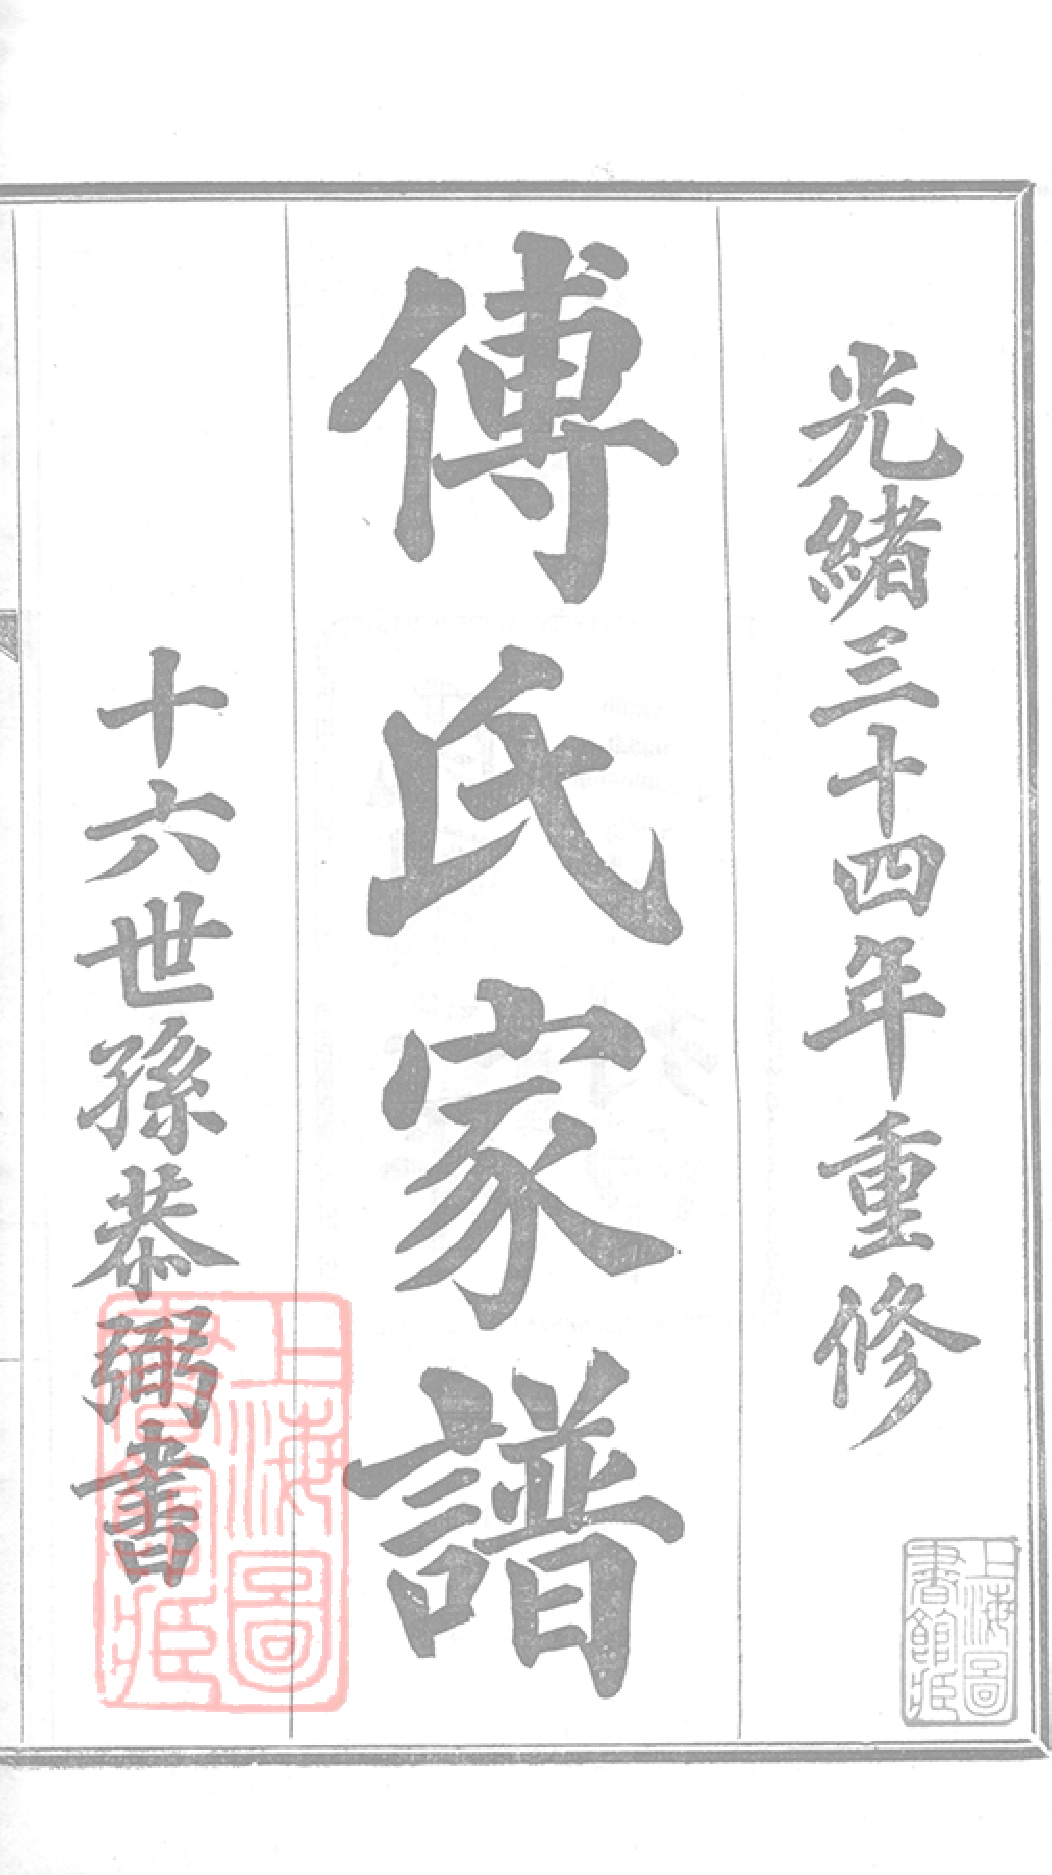 光緒三十四年重修
傅氏家譜
十六世孫恭弼書
上海圖
書館藏
上海圖
書館藏